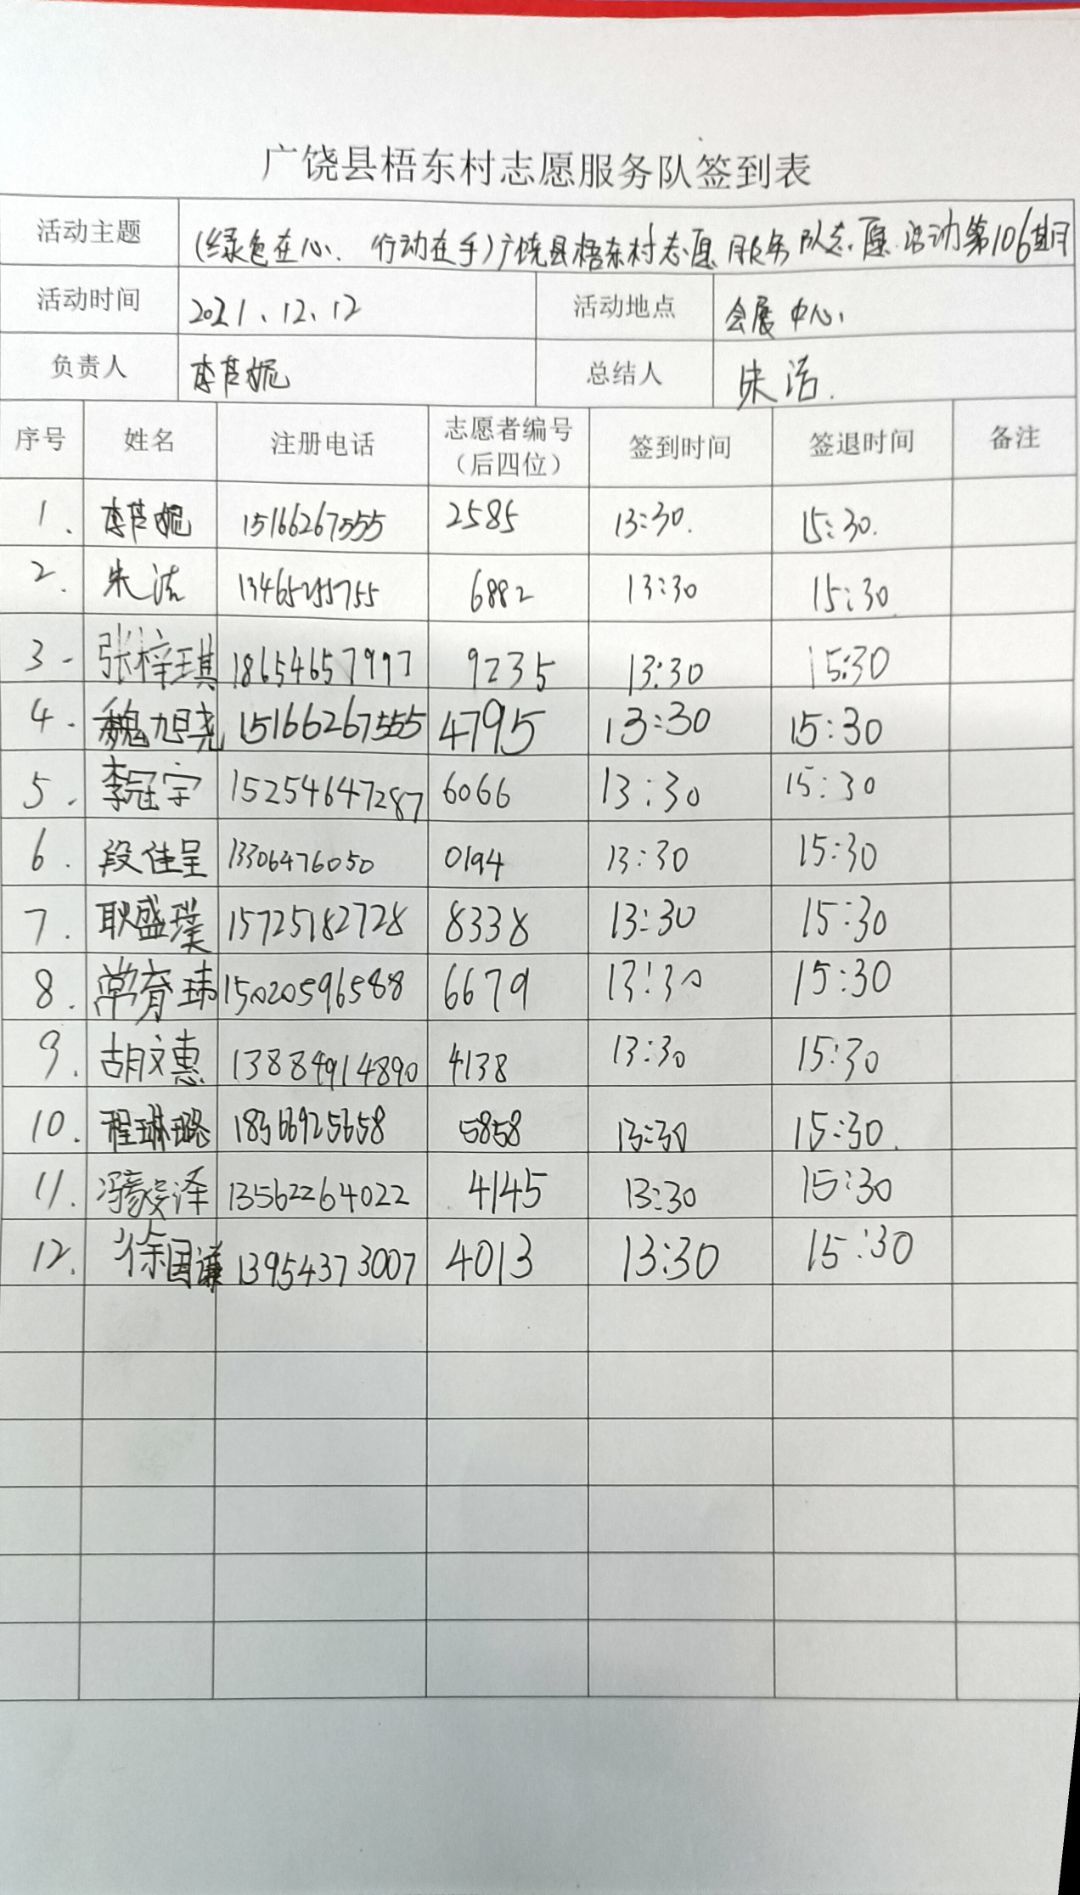 广饶县梧东村志愿服务队签到表
活动主题 (绿色在心、行动在手)广饶县梧东村志愿服务队志愿活动第106期
活动时间 2021、12、12 活动地点 会展中心
负责人 李芹妮 总结人 朱洁.
序号 姓名 注册电话 志愿者编号 签到时间 签退时间 备注
（后四位）
1. 李芹妮 15166267555 2585 13:30. 15:30.
2. 朱洁 13465255755 6882 13:30 15:30
3- 张梓琪 18654657997 9235 13:30 15:30
4. 魏旭尧 15166267555 4795 13:30 15:30
5. 李冠宇 15254647287 6066 13:30 15:30
6. 段佳呈 13306476050 0194 13:30 15:30
7. 耿盛璞 15725182728 8338 13:30 15:30
8. 常育玮 15020596588 6679 13:30 15:30
9. 胡文惠 13884914890 4138 13:30 15:30
10. 程琳璐 18366925658 5858 13:30 15:30.
11. 冯 泽 13562264022 4145 13:30 15:30
12. 徐国谦 13954373007 4013 13:30 15:30